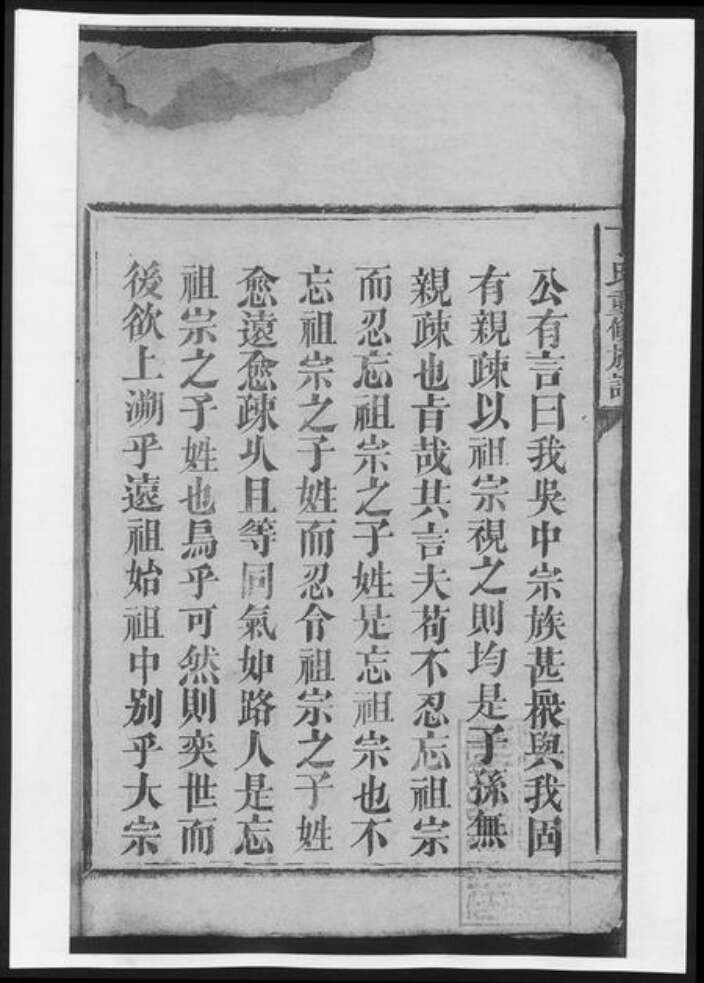 氏重修族譜
公有言曰我吳中宗族甚衆與我固
有親疎以祖宗視之則均是子孫無
親疎也旨哉其言夫苟不忍忘祖宗
而忍忘祖宗之子姓是忘祖宗也不
忘祖宗之子姓而忍令祖宗之子姓
愈遠愈疎乆且等同氣如路人是忘
祖宗之子姓也烏乎可然則奕世而
後欲上溯乎遠祖始祖中别乎大宗